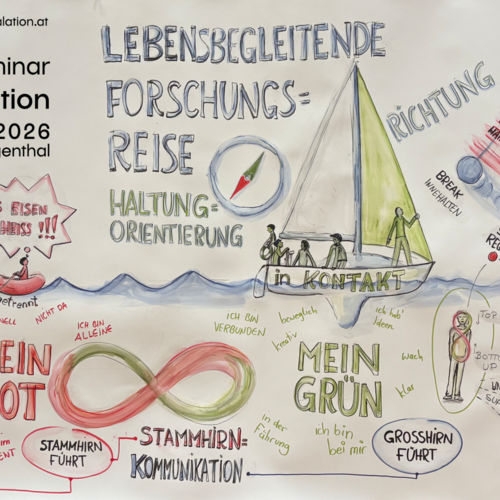 alation.at
inar
tion
2026
enthal
LEBENSBEGLEITENDE
FORSCHUNGS=
REISE
HALTUNG=
ORIENTIERUNG
RICHTUNG
BREAK
INNEHALTEN
S EISEN
HEISS !!!
in KONTAKT
getrennt
NELL
NICHT DA
ICH BIN
ALLEINE
ICH BIN
VERBUNDEN
beweglich
kreativ
ich hab'
Ideen
wach
klar
TOP
BOTT
UP
UN
EIN
OT
MEIN
GRÜN
in der
Führung
ich bin
bei mir
STAMMHIRN
FÜHRT
STAMMHIRN=
KOMMUNIKATION
GROSSHIRN
FÜHRT